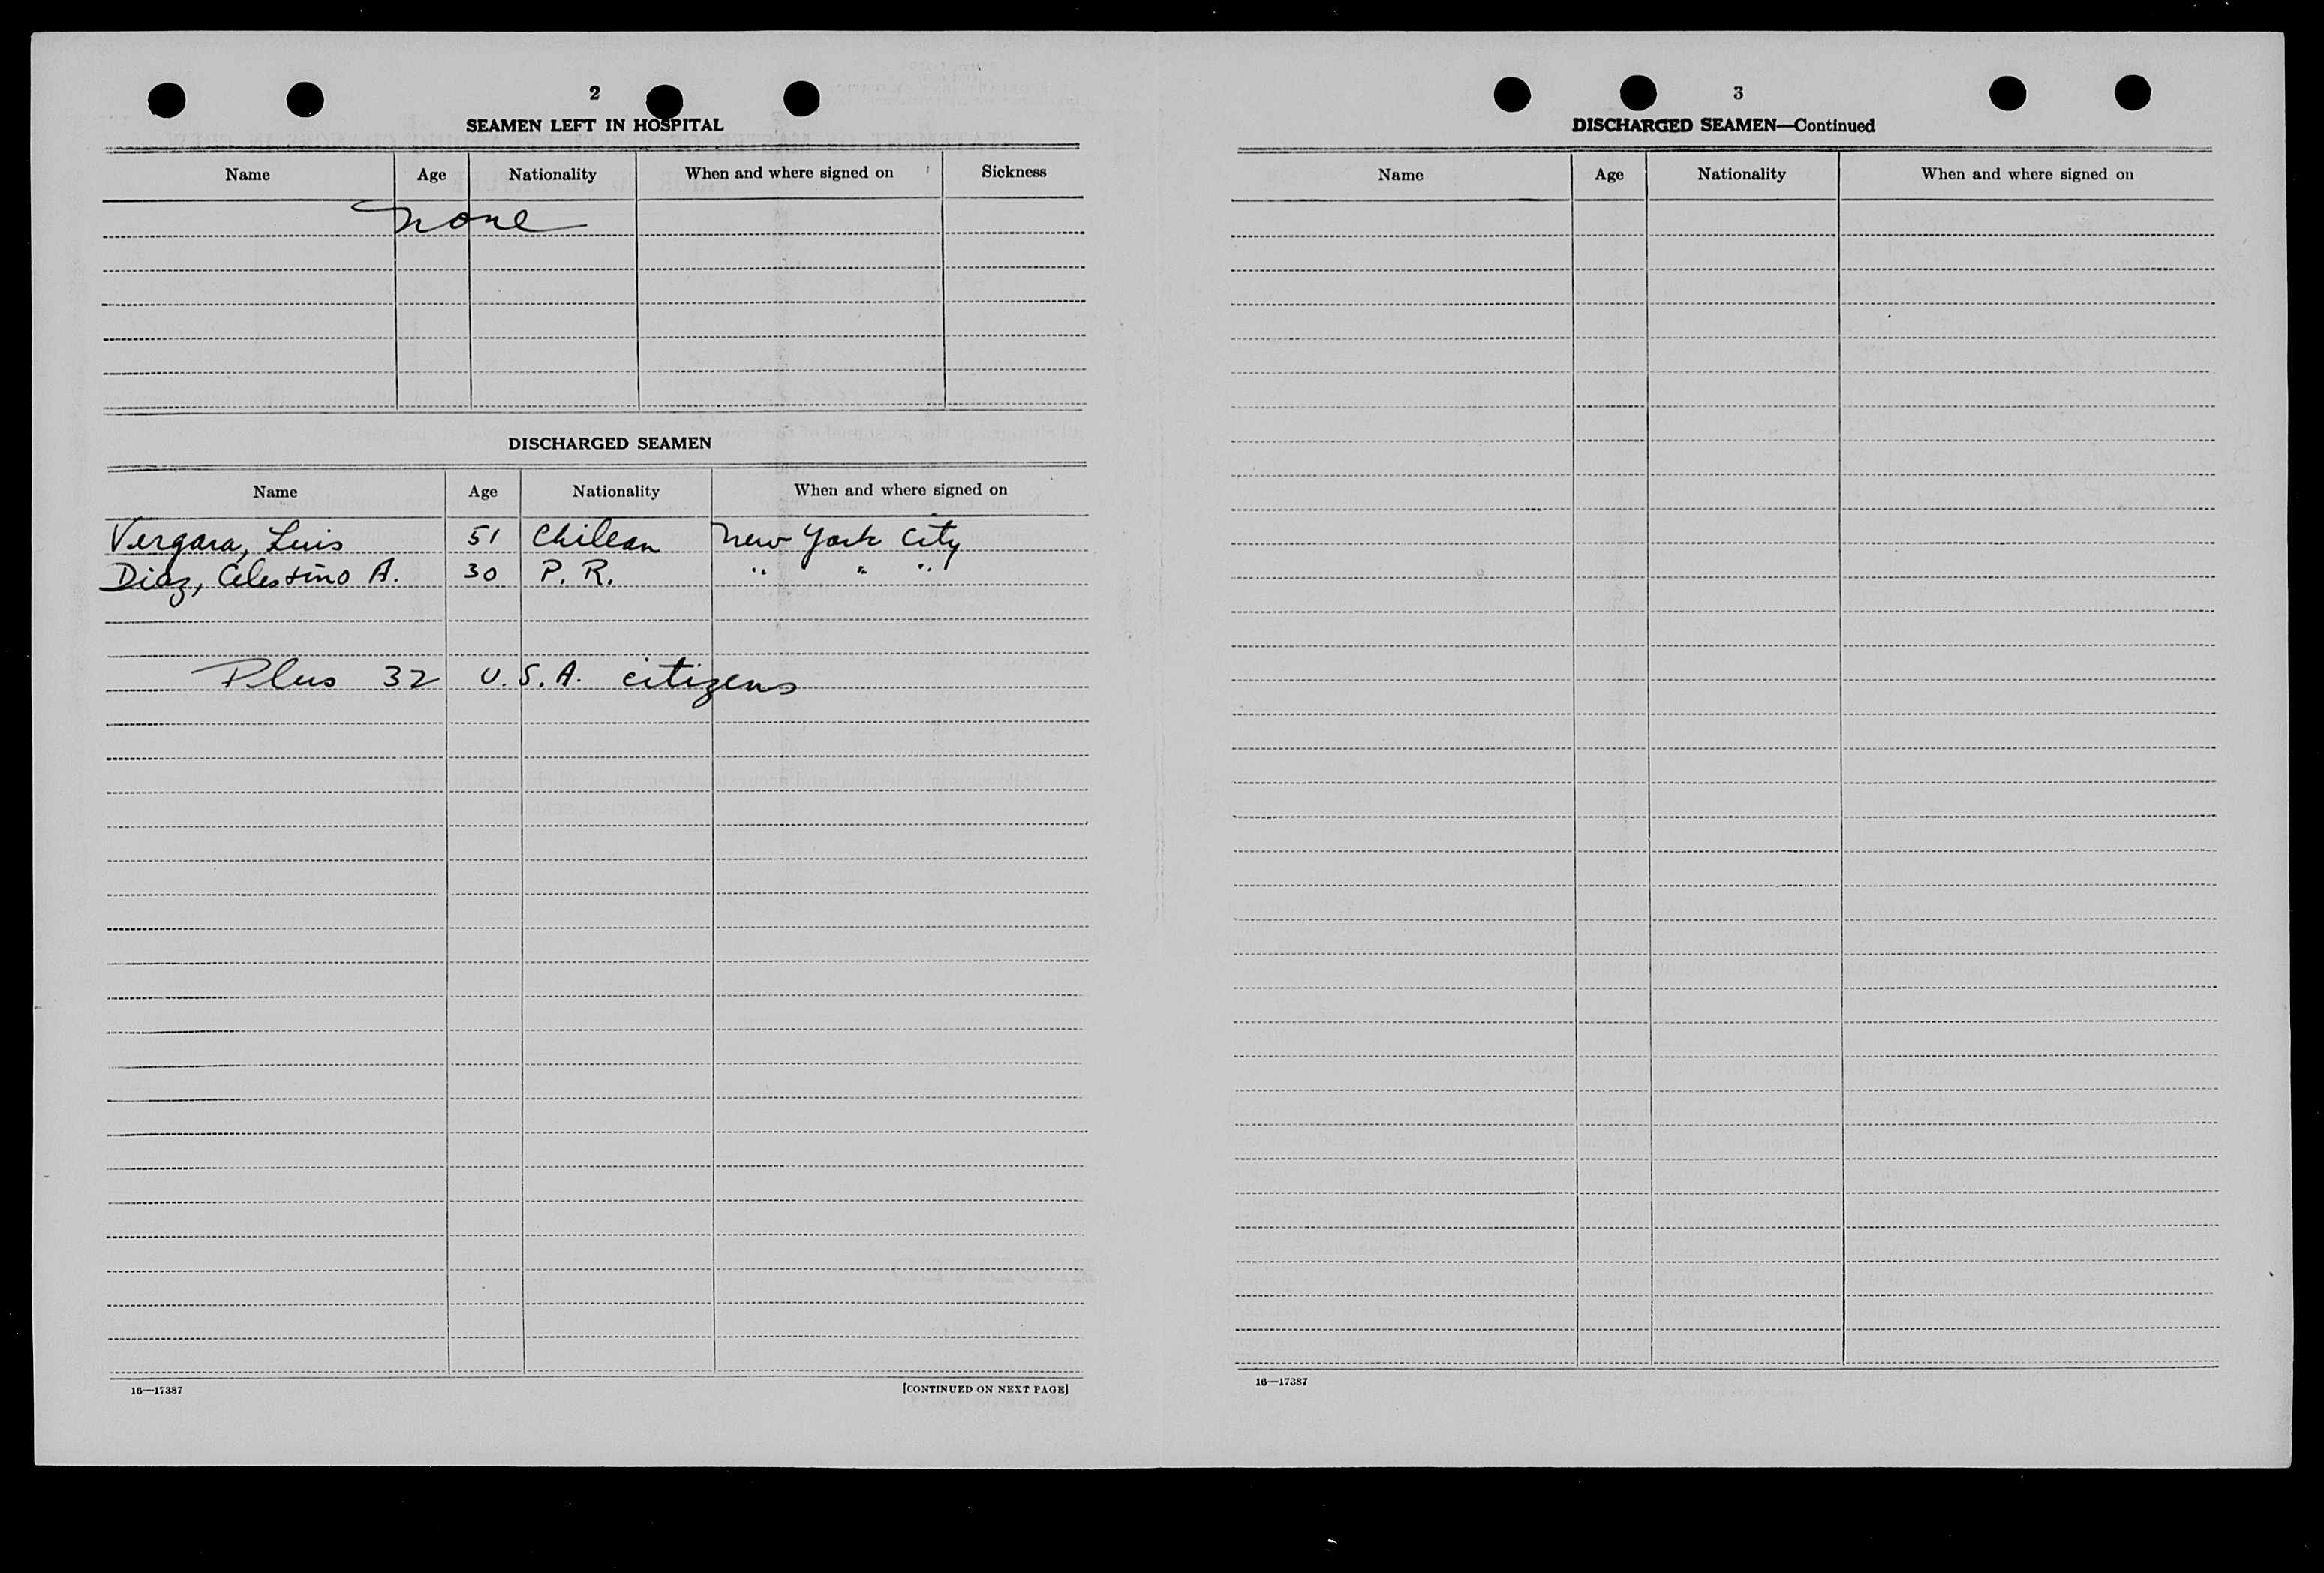 2
SEAMEN LEFT IN HOSPITAL
Name Age Nationality When and where signed on Sickness
none
DISCHARGED SEAMEN
Name Age Nationality When and where signed on
Vergara, Luis 51 Chilean New York City
Diaz, Celestino A. 30 P. R. " " "
Plus 32 U.S.A. citizens
16—17387 [CONTINUED ON NEXT PAGE]
3
DISCHARGED SEAMEN—Continued
Name Age Nationality When and where signed on
16—17387